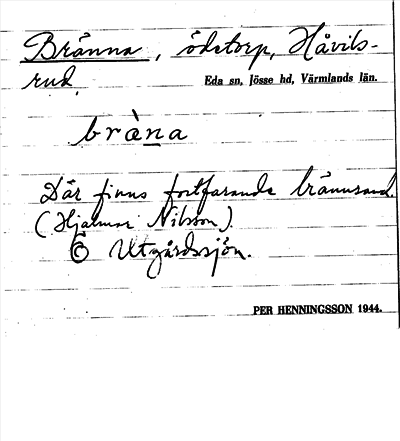 Bränna, ödetorp, Håvils-
rud, Eda sn, Jösse hd, Värmlands län.
bràna
Där finns fortfarande brännsand.
(Hjalmar Nilsson).
Ö Utgårdssjön.
PER HENNINGSSON 1944.